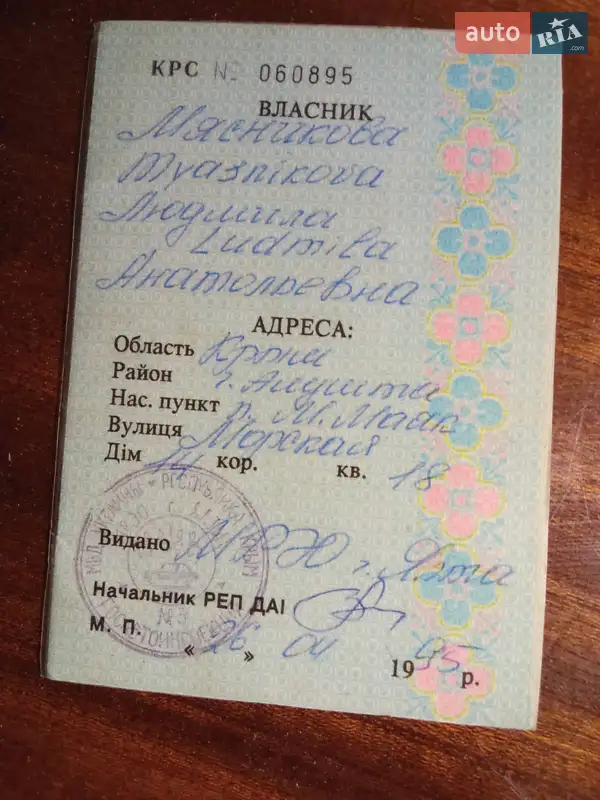 auto RIA .com
КРС № 060895
ВЛАСНИК
Мясникова
Myasnikova
Людмила
Ludmila
Анатольевна
АДРЕСА:
Область Крым
Район г. Алушта
Нас. пункт п. М. Маяк
Вулиця Морская
Дім 14 кор. кв. 18
Видано МРЭО г. Ялта
Начальник РЕП ДАІ
М. П.
« 26 » 04 1995 р.